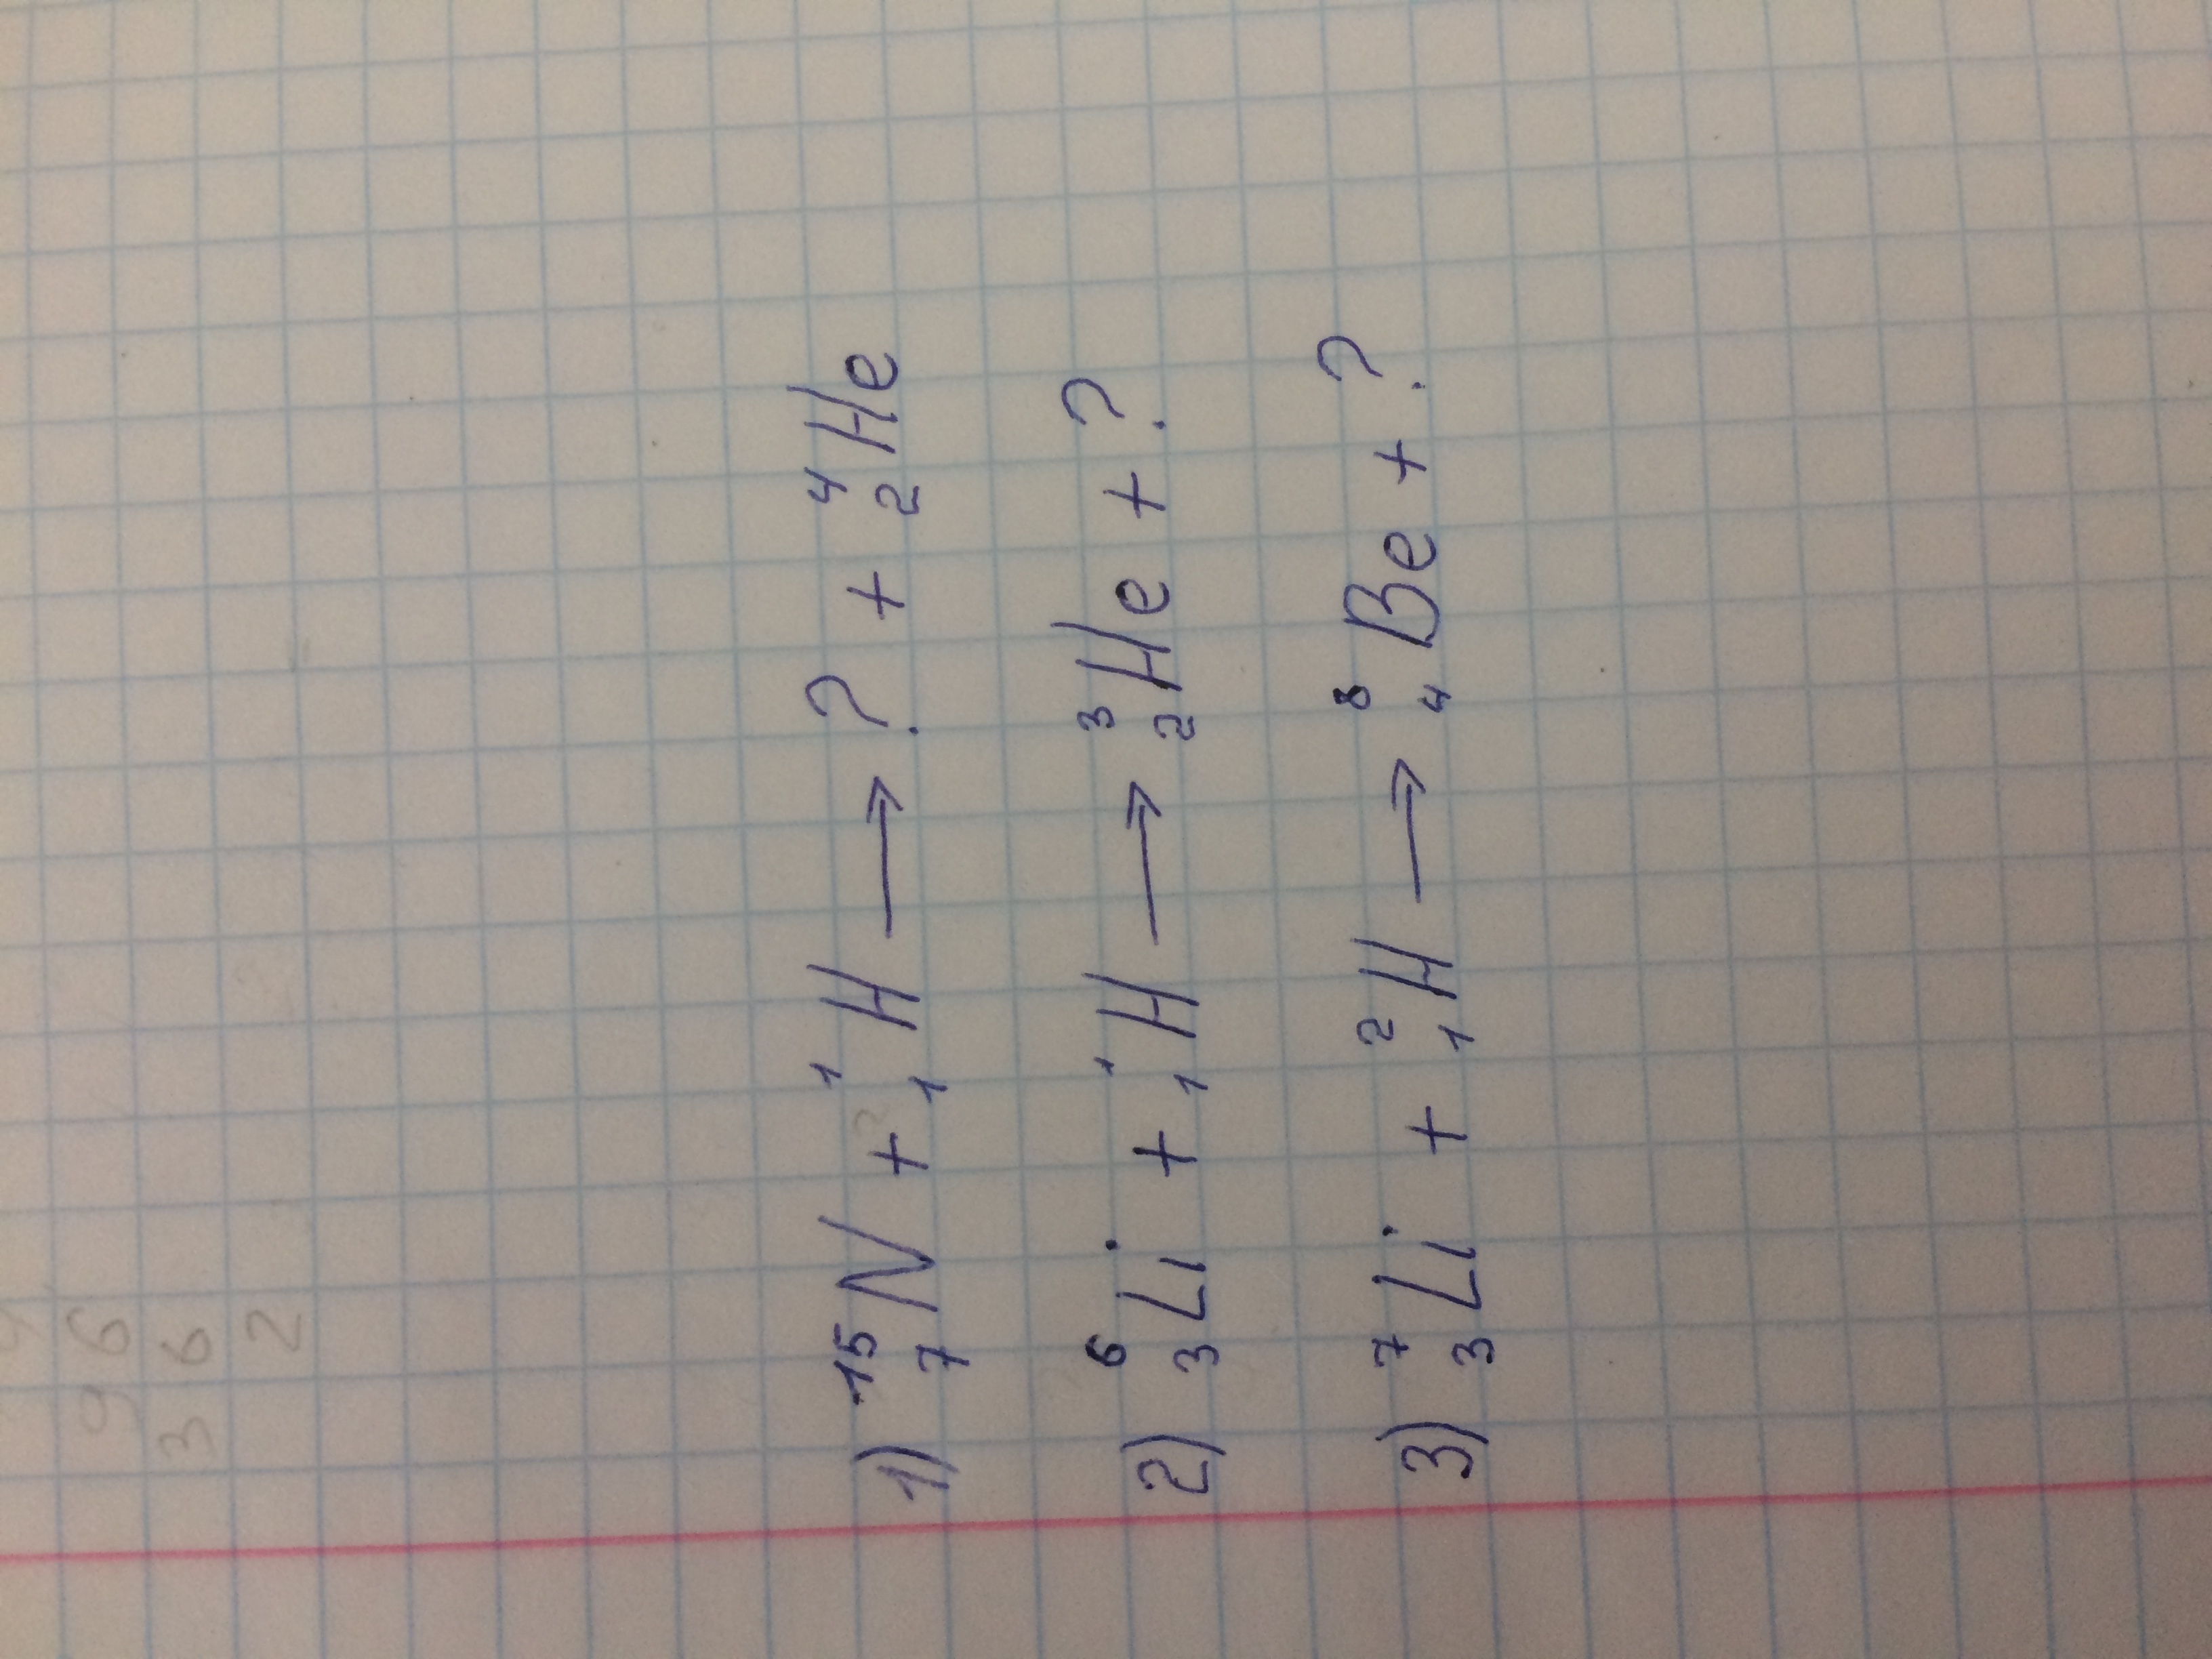 1) ¹⁵₇N + ¹₁H → ? + ⁴₂He
2) ⁶₃Li + ¹₁H → ³₂He + ?
3) ⁷₃Li + ²₁H → ⁸₄Be + ?
96
36
2